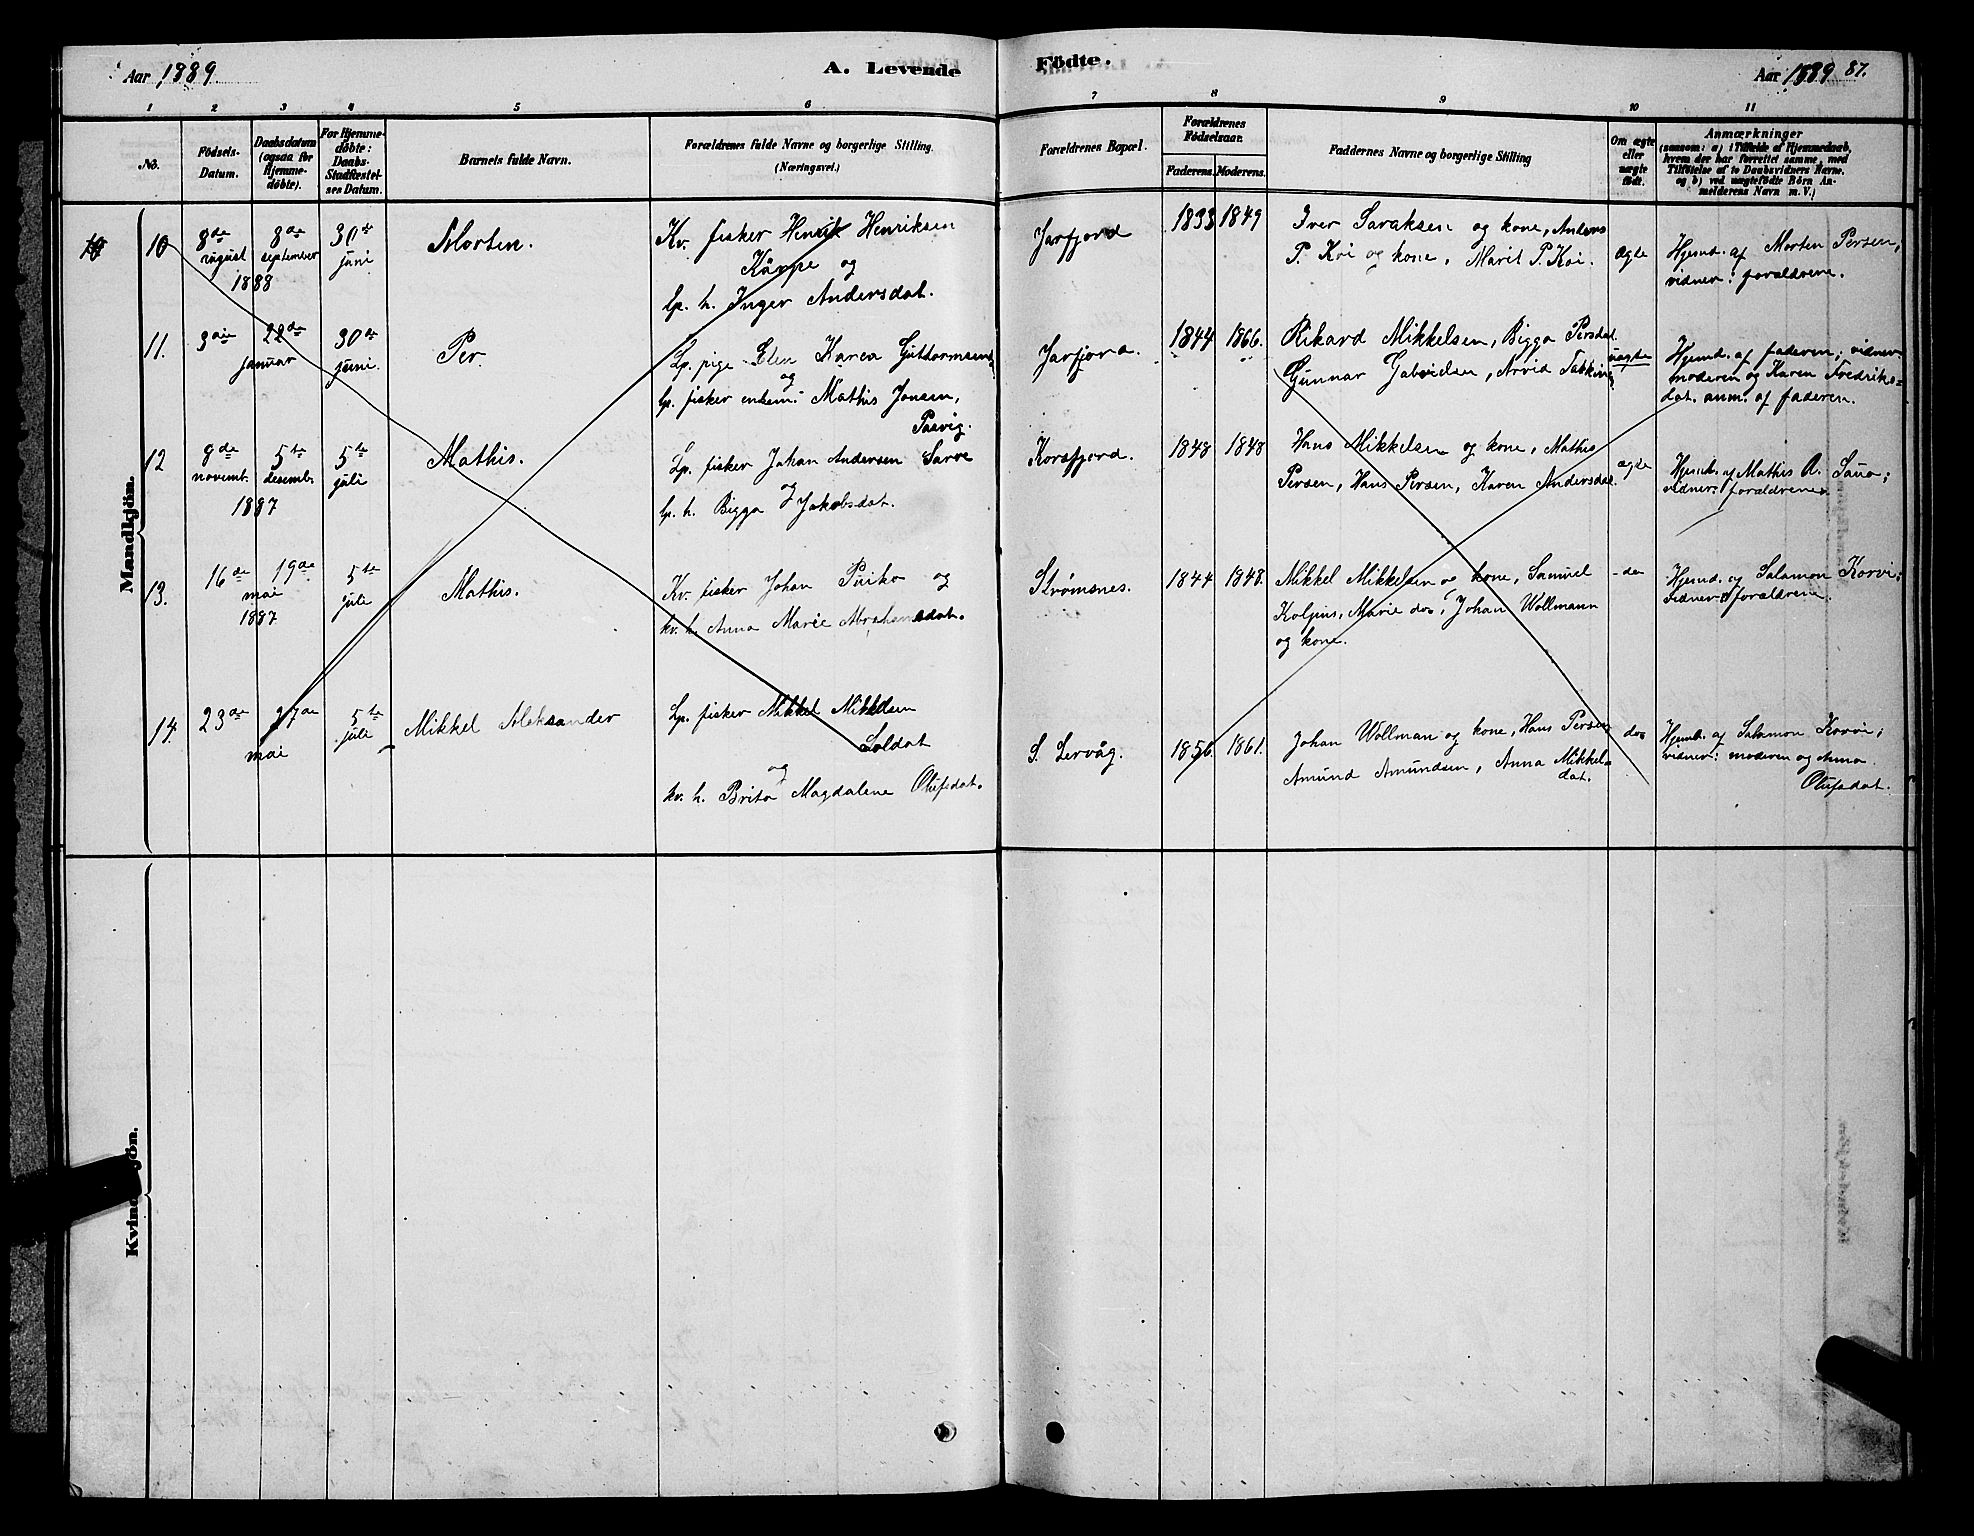 Aar 1889
A. Levende
Födte.
Aar 1889 87.
1 2 3 4 5 6 7 8 9 10 11
No.
Födsels-
Datum.
Daabsdatum
(ogsaa for
Hjemme-
döbte).
For Hjemme-
döbte:
Daabs-
Stadfæstel-
ses Datum.
Barnets fulde Navn.
Forældrenes fulde Navne og borgerlige Stilling.
(Næringsvei.)
Forældrenes Bopæl.
Forældrenes
Födselsaar.
Faderens. Moderens.
Faddernes Navne og borgerlige Stilling
Om ægte
eller
uægte
født.
Anmærkninger
(saasom: a) i Tilfælde af Hjemmedaab,
hvem der har forrettet samme, med
Tilføielse af to Daabsvidners Navne,
og b) ved uægtefödte Börn An-
melderens Navn m. V.)
Mandkjön.
10 8de august 8de september 1888 30te juni Morten.
Kv. fisker Henrik Henriksen
Käppe og
lp. h. Inger Andersdat.
Jarfjord 1833 1849
Iver Saraksen og kone, Anders
P. Koi og kone, Marit P. Koi.
ægte
Hjemd. af Morten Persen,
vidner: forældrene.
11. 3die 22de januar 30te juni. Per.
Lp. pige Elen Karea Guttormsend.
og
lp. fisker enkem. Mathis Jonsen,
Pasvig.
Jarfjord. 1844 1866.
Rikard Mikkelsen, Bigga Persdat.
Gunnar Gabrielsen, Arvid
uægte
Hjemd. af faderen; vidner
moderen og Karen Fredriks-
dat. anm. af faderen.
12 8de novemb. 5te desemb. 1887 5te juli Mathis.
Lp. fisker Johan Andersen Sarre
og
lp. h. Bigga Jakobsdat.
Korsfjord. 1848 1848
Hans Mikkelsen og kone, Mathis
Persen, Hans Persen, Karen Andersdat.
ægte
Hjemd. af Mathis A. ;
vidner: forældrene.
13. 16de 19de mai 1887 5te juli Mathis.
Kv. fisker Johan Puiko og
kv. h. Anna Marie Abrahamsdat.
Strømsnes. 1844 1848.
Mikkel Mikkelsen og kone, Samuel
Kolpus, Marie dos, Johan Wollmann
og kone.
- do
Hjemd. af Salamon Korvi;
vidner: forældrene.
14. 23de 27de mai 5te juli Mikkel Aleksander
Lp. fisker Mikkel Mikkelsen
Soldat
og
kv. h. Brita Magdalene Olufsdat.
S. Lervåg. 1856. 1861.
Johan Wollman og kone, Hans Persen
Amund Amundsen, Anna Mikkels-
dat.
dos
Hjemd. af Salamon Korvi;
vidner: moderen og Anna
Olufsdat.